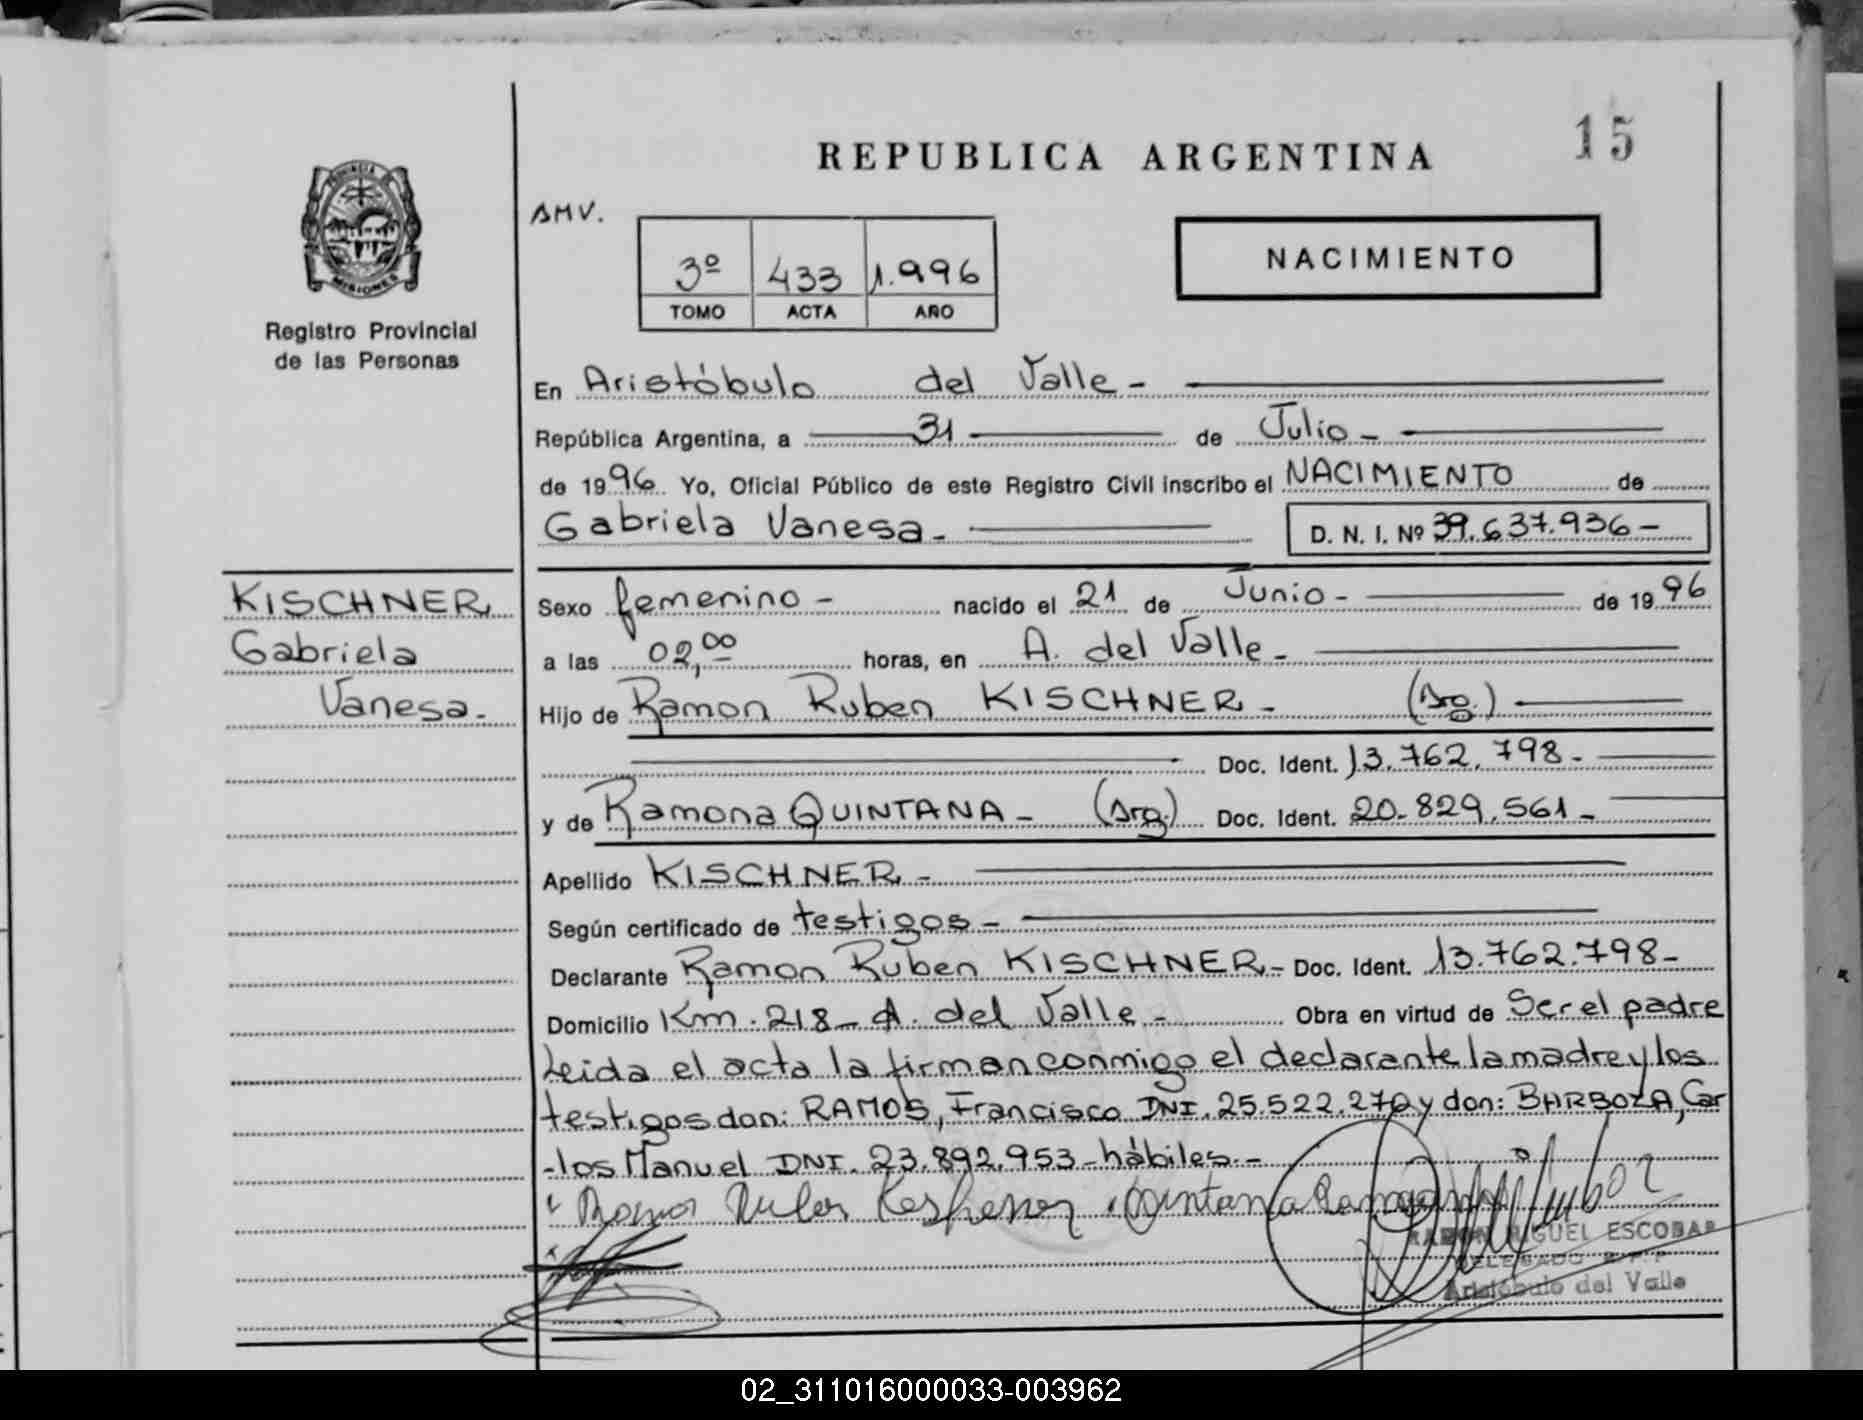 15
REPUBLICA ARGENTINA
PROVINCIA
MISIONES
Registro Provincial
de las Personas
AMV.
3º 433 1.996
TOMO ACTA AÑO
NACIMIENTO
En Aristóbulo del Valle -
República Argentina, a 31 de Julio -
de 1996. Yo, Oficial Público de este Registro Civil inscribo el NACIMIENTO de
Gabriela Vanesa - D. N. I. Nº 39.637.936 -
KISCHNER
Gabriela
Vanesa.-
Sexo femenino - nacido el 21 de Junio - de 1996
a las 02,00 horas, en A. del Valle -
Hijo de Ramon Ruben KISCHNER - (Arg.)
Doc. Ident. 13.762.798 -
y de Ramona QUINTANA - (Arg.) Doc. Ident. 20.829.561 -
Apellido KISCHNER -
Según certificado de testigos -
Declarante Ramon Ruben KISCHNER - Doc. Ident. 13.762.798 -
Domicilio Km. 218 - A. del Valle - Obra en virtud de Ser el padre
Leida el acta la firman conmigo el declarante la madre y los
testigos don: RAMOS, Francisco DNI. 25.522.270 y don: BARBOZA, Car
-los Manuel DNI. 23.892.953 - hábiles.-
Quintana Ramona
RAMON MIGUEL ESCOBAR
DELEGADO R.P.P
Aristóbulo del Valle
02_311016000033-003962